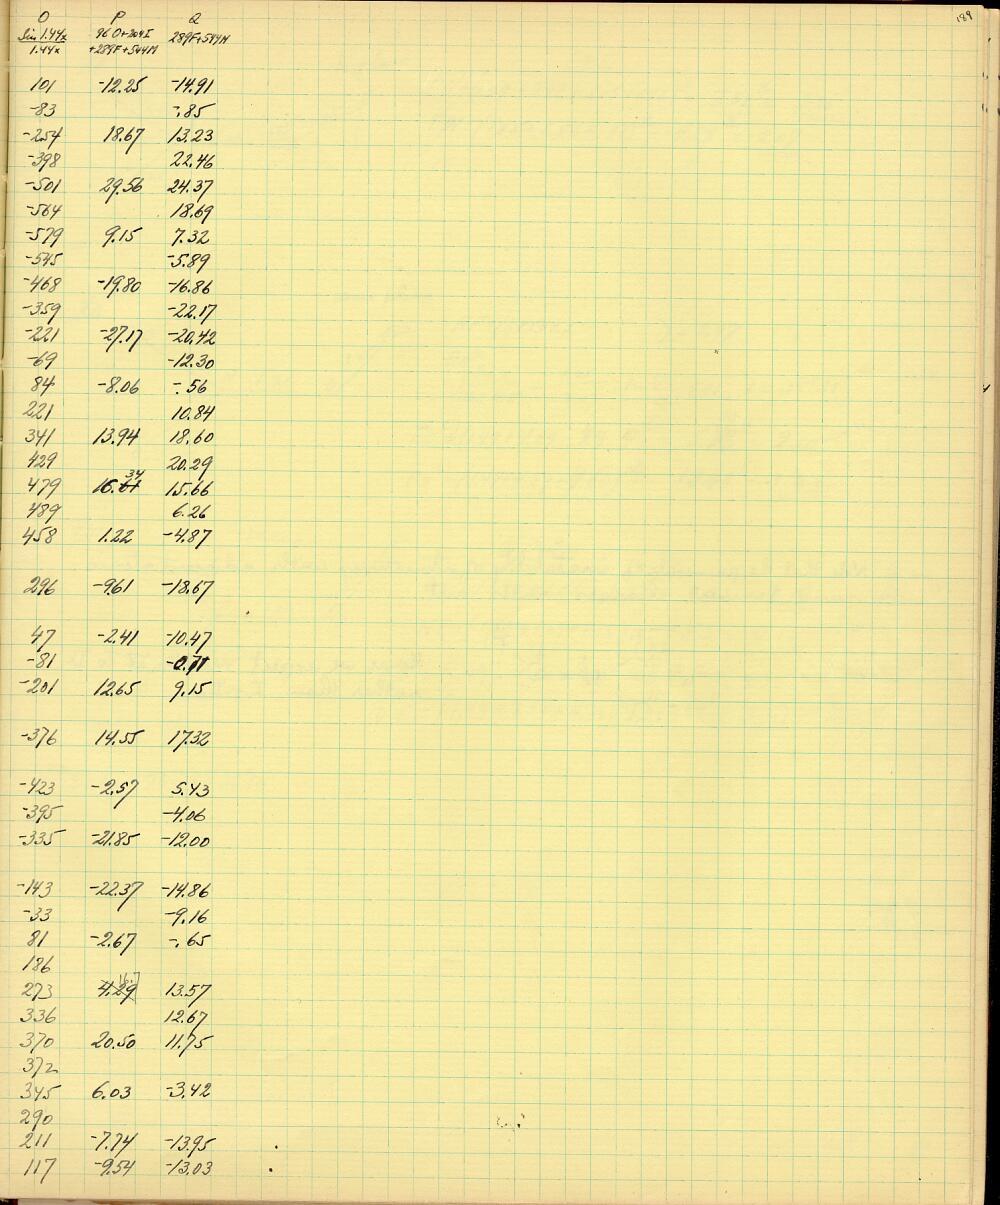 189
O P Q
Sin 1.44x 96O+204I 289F+544M
1.44x +289F+544M
101 -12.25 -14.91
-83 -.85
-254 18.67 13.23
-398 22.46
-501 29.56 24.37
-564 18.69
-579 9.15 7.32
-545 -5.89
-468 -19.80 -16.86
-359 -22.17
-221 -27.17 -20.42
-69 -12.30
84 -8.06 -.56
221 10.84
341 13.94 18.60
429 20.29
34
479 16.61 15.66
489 6.26
458 1.22 -4.87
296 -9.61 -18.67
47 -2.41 -10.47
-81 -0.71
-201 12.65 9.15
-376 14.55 17.32
-423 -2.57 5.43
-395 -4.06
-335 -21.85 -12.00
-143 -22.37 -14.86
-33 -9.16
81 -2.67 -.65
186
16.7
273 4.29 13.57
336 12.67
370 20.50 11.75
372
345 6.03 -3.42
290
211 -7.74 -13.95
117 -9.54 -13.03